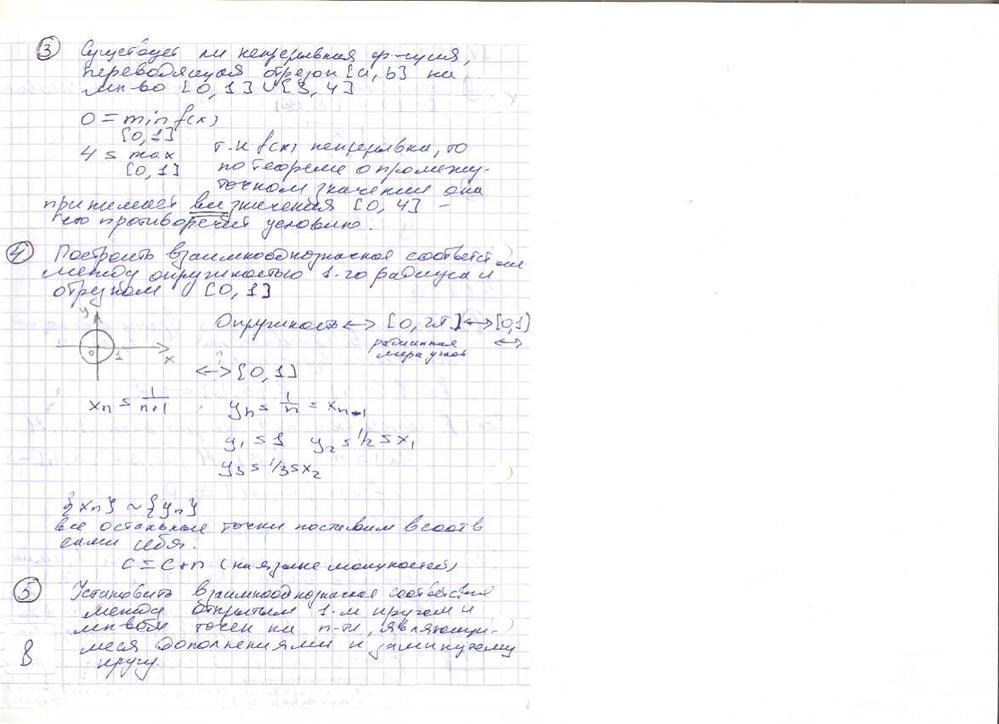 ③ Существует ли непрерывная ф-кция,
переводящая отрезок [a, b] на
мн-во [0, 1] ∪ [3, 4]
0 = min f(x)
[0, 1]
4 = max
[0, 1]
т.к f(x) непрерывна, то
по теореме о промежу-
точном значении она
принимает все значения [0, 4] -
что противоречит условию.
④ Построить взаимнооднозначное соответствие
между окружностью 1-го радиуса и
отрезком [0, 1]
y
0 1 x
Окружность ↔ [0, 2π] ↔ [0, 1)
радианная ↔
мера углов
↔ [0, 1]
xn = 1/n+1 . yn = 1/n = xn-1
y1 = 1 y2 = 1/2 = x1
y3 = 1/3 = x2
{xn} ~ {yn}
все остальные точки поставим в соотв
сами себя.
c = c+n (на языке мощностей)
⑤ Установить взаимнооднозначное соответствие
между открытым 1-м кругом и
мн-вом точек на п-ти, являющи-
меся дополнениями к замкнутому
кругу.
8